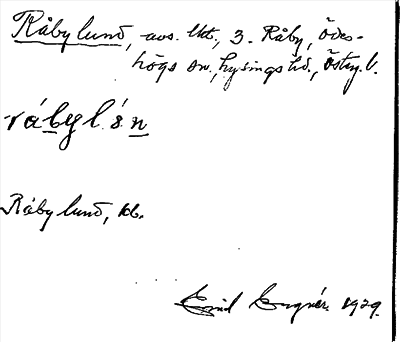 Råbylund, avs. lht., 3. Råby, Ödes-
högs sn, Lysings hd, Östg. l.
rábylön
Råbylund, kb.
Emil Engnér. 1929.